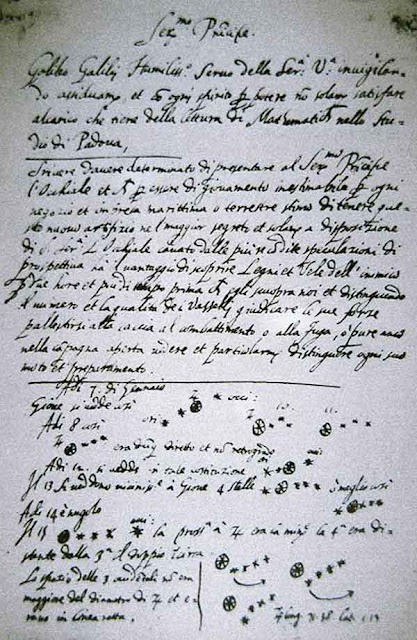 Ser.mo Principe.
Galileo Galilej Humiliss.o Servo della Ser.a V.a invigilan-
do assiduamte, et cō ogni spirito p potere nō solam satisfare
al carico che tiene della lettura di Mathematich nello Stu-
dio di Padova,
Scrivere d'avere determinato di presentare al Ser.mo Principe
l'Occhiale et p essere di giovamento inestimabile p ogni
negotio et impresa marittima o terrestre stimo di tenere que-
sto nuovo artifizio nel maggior segreto et solam a disposizione
di S. Ser.a L'Occhiale cavato dalle più recōdite speculazioni di
prospettiva ha il vantaggio di scoprire Legni et Vele dell'inimico
p due hore et più di tempo prima ch egli scuopra noi et distinguendo
il numero et la qualità de i Vasselli giudicare le sue forze
pallestirsi alla caccia al combattimento o alla fuga, o pure anco
nella capagna aperta vedere et particolarm distinguere ogni suo
moto et preparamento.
Adi 7. di Gennaio
Giove si vede così
Adi 8 così
era dūq diretto et nō retrogrado
Adi 12. si vedde in tale costituzione
Il 13 si veddono vicinis.e a Giove 4 stelle meglio così
Adi 14 è nugolo
Il 15 la pross.a a ♃ era la min.e la 4.a era di-
stante dalla 3.a il doppio
Lo spazio delle 3 occidentali nō era
maggiore del diametro di ♃ et e-
rano in linea retta.